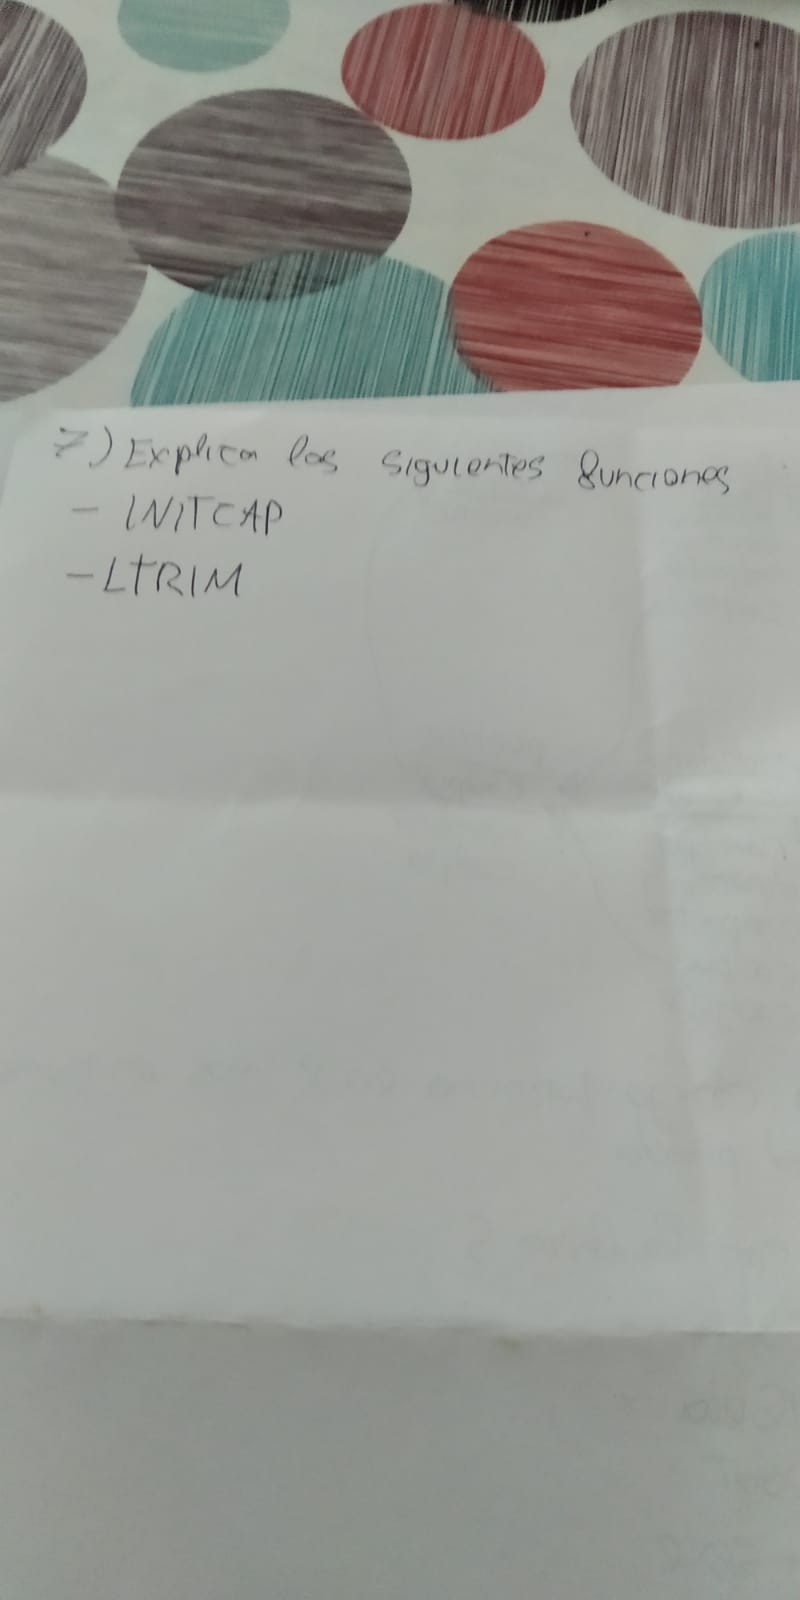 7) Explica las siguientes funciones
- INITCAP
- LTRIM